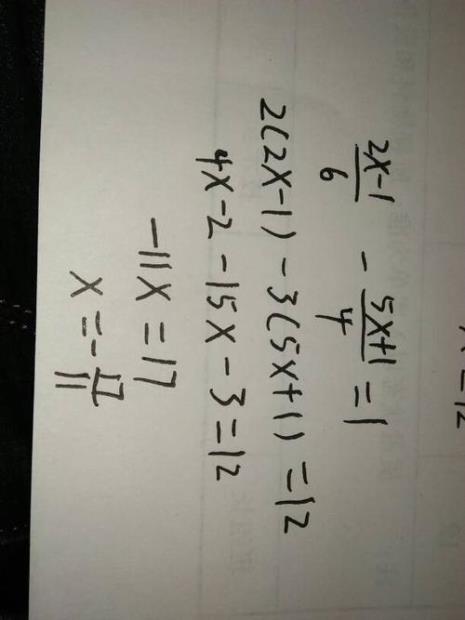 x=12
\frac{2x-1}{6} - \frac{5x+1}{4} = 1
2(2x-1)-3(5x+1)=12
4x-2-15x-3=12
-11x=17
x=-\frac{17}{11}